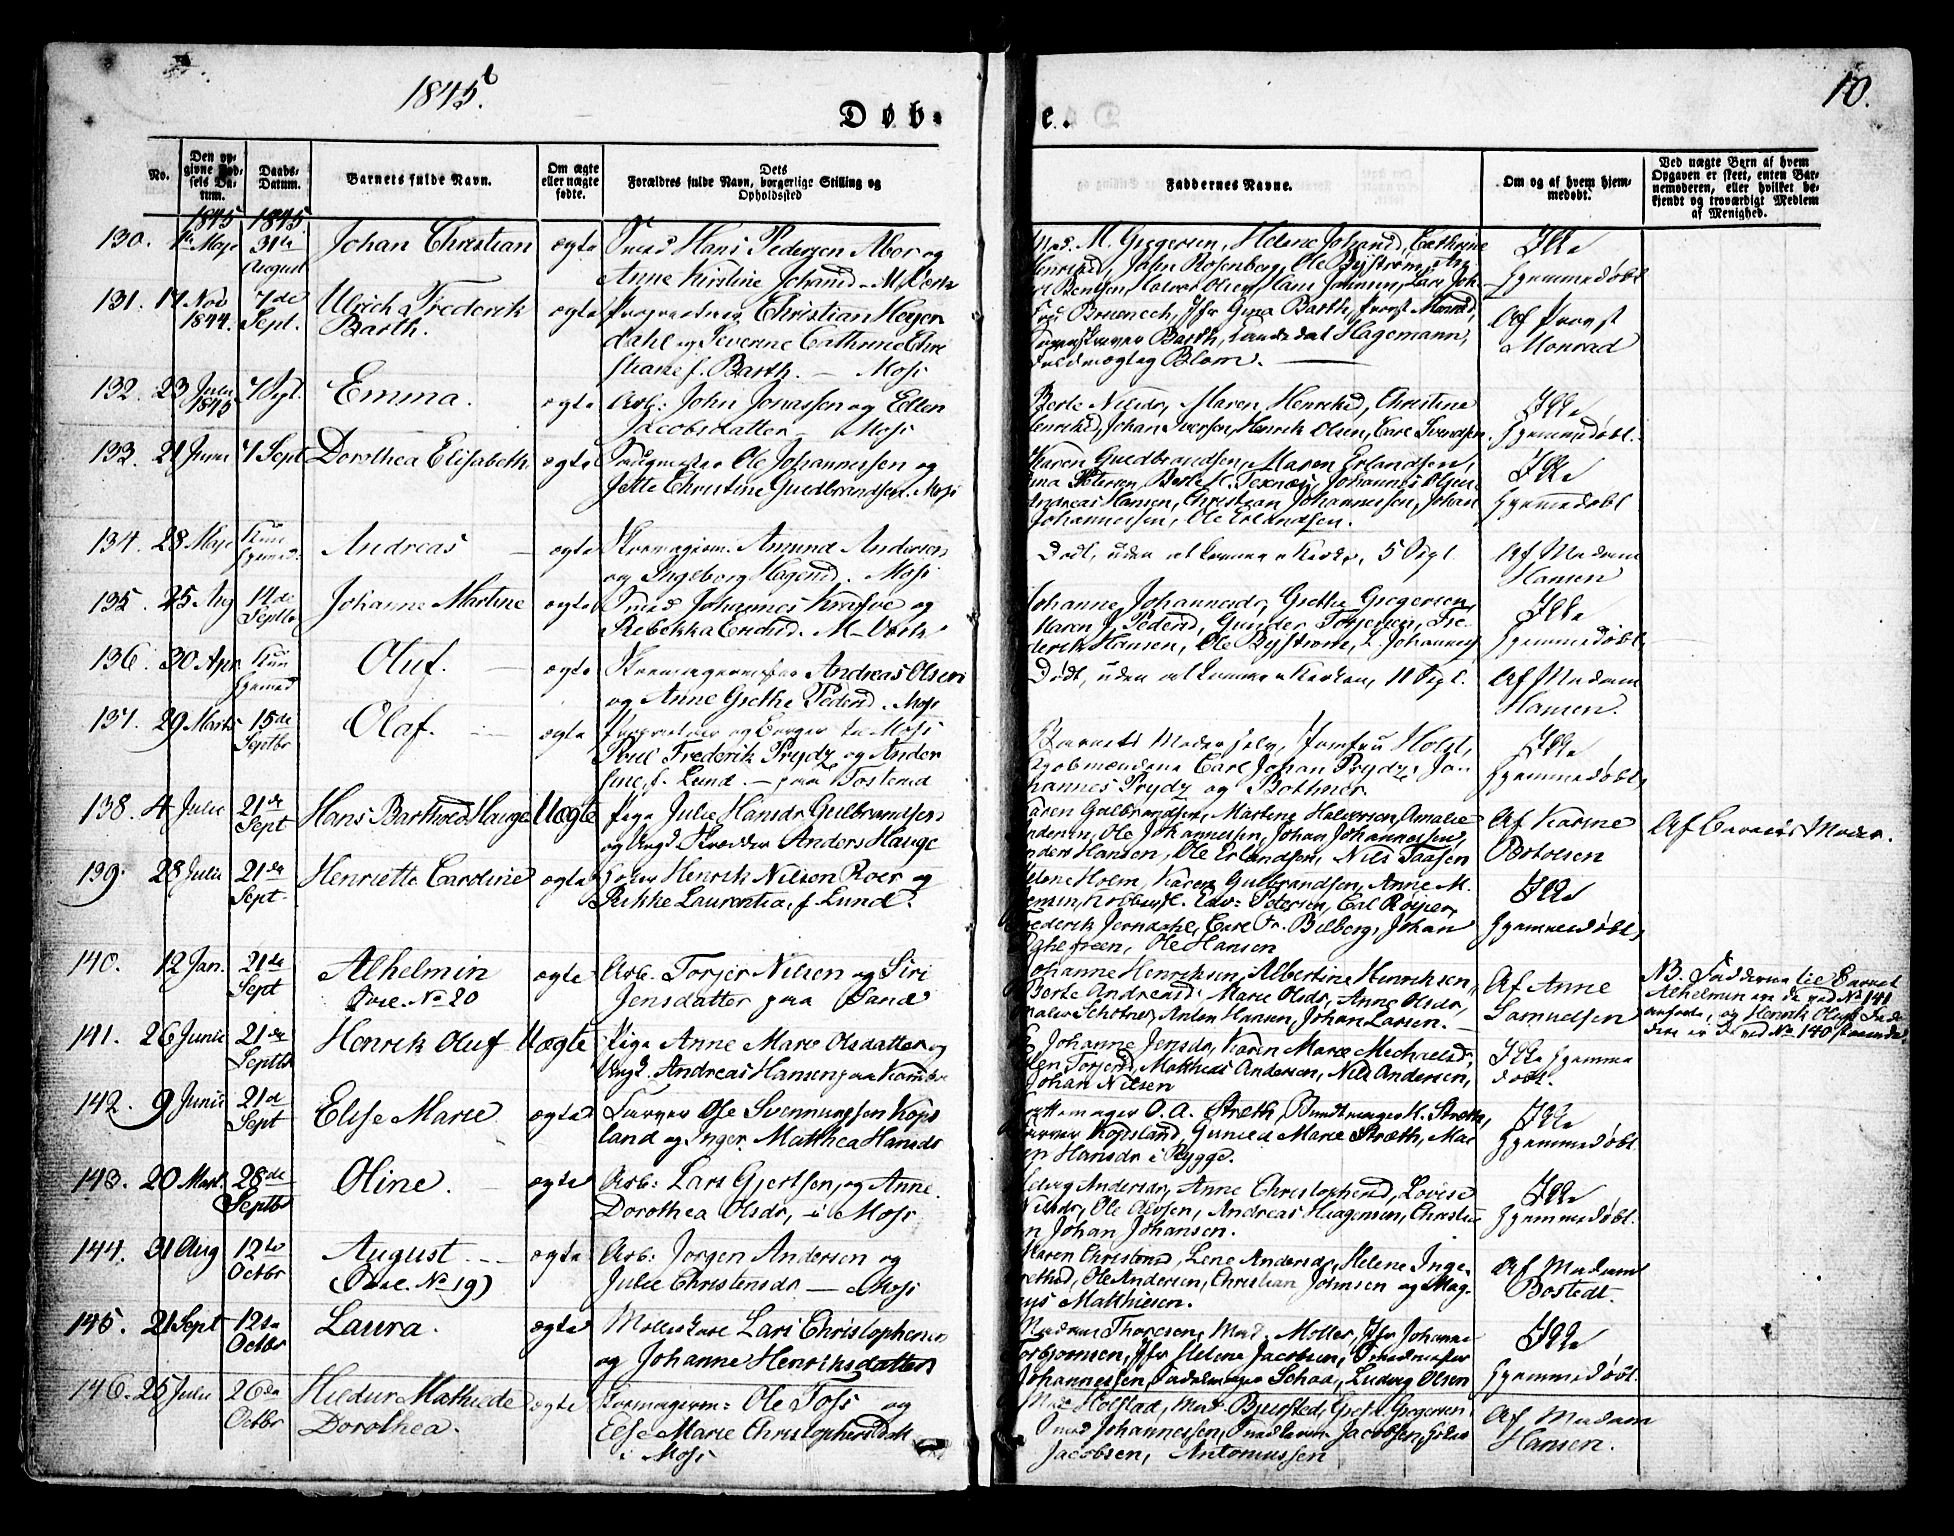 1845.
10.
Døb-
e.
No.
Den op-
givne Fød-
sels Da-
tum.
Daabs-
Datum.
Barnets fulde Navn.
Om ægte
eller uægte
fødte.
Dets
Forældres fulde Navn, borgerlige Stilling og
Opholdssted
Faddernes Navne.
Om og af hvem hjem-
medøbt.
Ved uægte Barn af hvem
Opgaven er skeet, enten Bar-
nemoderen, eller hvilket be-
kjendt og troværdigt Medlem
af Menighed.
1845 1845.
130. 1ste Maje 31te August Johan Christian ægte
Smed Hans Pedersen Moor og
Anne Kirstine Johansd.
M. Gregersen, Helene Johansd, Cathrine
Henriksd, John Rosenberg, Ole Byström,
Bentsen, Halvor Olsen, Hans Johnsen, Lars Joh
Ikke
hjemmedøbt
131. 17 Nov 1844. 7de Sept. Ulrich Frederik
Barth. ægte
Christian Heyer
dahl og Severine Cathrine Chri
stiane f. Barth. — Moss
Fru Bruenech, Jfr Gina Barth, Provst Monrad,
Barth, Hagemann,
Fuldmægtig Blom. —
Af Provst
Monrad
132. 23 Julii 1845 7 Sept. Emma. ægte
Arb: John Jonassen og Ellen
Jacobsdatter — Moss
Berte Nilsdr, Maren Henriksd, Christine
Henriksd, Johan Iversen, Henrik Olsen, Carl Svendsen.
Ikke
hjemmedøbt.
133. 21 Juni 7 Sept Dorothea Elisabeth. ægte
Ole Johannessen og
Jette Christine Guldbrandsen. Moss
Karen Guldbrandsen, Maren Erlandsen,
Petersen, Berte M. Johannes Olsen
Andreas Hansen, Christian Johannessen, Johan
Johannessen, Ole Erlandsen.
Ikke
hjemmedøbt
134. 28 Maje Kun hjemed. Andreas — ægte
Amund Andersen
og Ingeborg Hagensd. Moss
Dødt, uden at komme i Kirke, 5 Sept.
Af Madam
Hansen
135. 25 Aug 14de Septbr Johanne Martine ægte
Smed Johannes
Rebekka
Johanne Johannesdr, Grethe Gregersen,
Karen J. Pedersd, Gunder Torjersen, Fre
derik Hansen, Ole Byström, L. Johannes
Ikke
hjemmedøbt.
136. 30 Apr. Kun hjemed Oluf. — ægte
Andreas Olsen
og Anne Grethe Pedersd. Moss
Dødt, uden at komme i Kirken, 11 Sept.
Af Madam
Hansen.
137. 29 Marts 15de Septbr Olaf. — ægte
og Borger i Moss
Poul Frederik Prydz og Ander
sine, f. Lund. — paa
Barnets Moder selv, Jomfru Holst,
Kjøbmændene Carl Johan Prydz, Jo
hannes Prydz og Bothner.
Ikke
hjemmedøbt,
138. 4 Julie 21de Sept Hans Barthold Hauge Uægte
Pige Julie Hansdr Gulbrandsen
og Ungk. Anders Hauge
Karen Gulbrandsen, Martine Halvorsen, Amalie
Andersen, Ole Johannessen, Johan Johannessen,
Anders Hansen, Ole Erlandsen, Nils Taasen
Af Karine
Bertolsen
Af Barnets Moder.
139. 28 Julii 21de Sept. Henriette Caroline ægte
Henrik Nilsen Roer og
Rikke Laurentia, f Lund.
Helene Holm, Karen Gulbrandsen, Anne M.
Petersen, Carl
Frederik Jerndahl, Carl Fr. Bilberg, Johan
Ole Hansen
Ikke
hjemmedøbt,
140. 12 Jan. 21de Sept Alhelmin
No 20 ægte
Arb. Torjer Nilsen og Siri
Jensdatter paa Sand
Johanne Henriksen, Albertine Henriksen,
Berte Andreasd, Marie Olsdr, Anne Olsdr,
Anton Hansen, Johan Larsen. —
Af Anne
Samuelsen
NB. Fadderne til Barnet
Alhelmin ere de ved No 141
anførte, og Henrik Olufs Fad
dere er de ved No 140 staaende.
141. 26 Junii 21de Septbr Henrik Oluf Uægte
Pige Anne Marie Olsdatter og
Ungk. Andreas Hansen paa Kambo
Johanne Jensdr, Karen Marie Michaelsd,
Ellen Torjersd, Matthias Andersen, Nils Andersen,
Johan Nilsen
Ikke hjemme
døbt.
142. 9 Junii 21de Sept Elise Marie ægte
Farver Ole Svenningsen Kops
land og Inger Matthea Hansdr
O. A. Stræth, Bundtmager H. Stræth,
Farver Kopsland, Gunild Marie Stræth, Mar
Hansdr i Rygge.
Ikke
hjemmedøbt.
143. 20 Mart. 28de Septbr Oline. — ægte
Arb: Lars Gjertsen, og Anne
Dorothea Olsdr, i Moss
Andersdr, Anne Christophersd, Lovise
Nilsdr, Ole Olsen, Andreas Haagensen, Christia
n Johan Johansen.
Ikke
hjemmedøbt.
144. 31 Aug 12te Octbr August —
No 19) ægte
Arb: Jørgen Andersen og
Julie Christensdr — Moss
Karen Christensd, Lene Andersdr, Helene Inge
brethsd, Ole Andersen, Christian Johnsen og Mag
nus Mathiesen.
Af Madam
Bostedt.
145. 21 Sept 12te Octbr Laura. ægte
Lars Christophersen
og Johanne Henriksdatter
Madam Thoresen, Mad. Møller, Jfr Johanne
Torbjørnsen, Jfr Helene Jacobsen,
Johannessen, Schaa, Ludvig Olsen
Ikke
hjemmedøbt.
146. 25 Julii 26de Octbr Hildur Mathilde
Dorothea. ægte
Ole Foss og
Else Marie Christophersdatt
i Moss
Mad Holstad, Mad. Bjursted, Greth. Gregersen,
Smed Johannessen, Jacobsen,
Jacobsen, Antoniussen
Af Madam
Hansen.